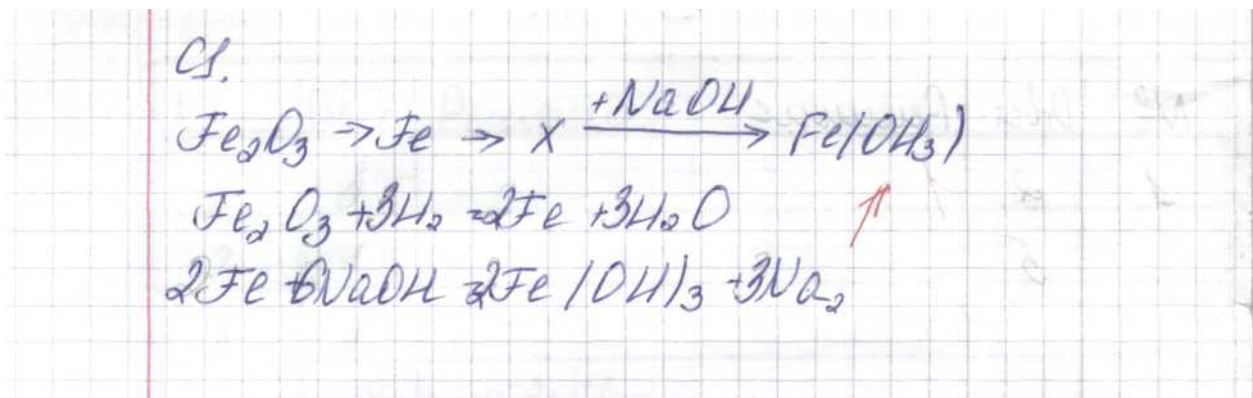 С1.
Fe₂O₃ → Fe → X +NaOH → Fe(OH₃)
Fe₂O₃ + 3H₂ = 2Fe + 3H₂O
2Fe + 6NaOH = 2Fe(OH)₃ + 3Na₂